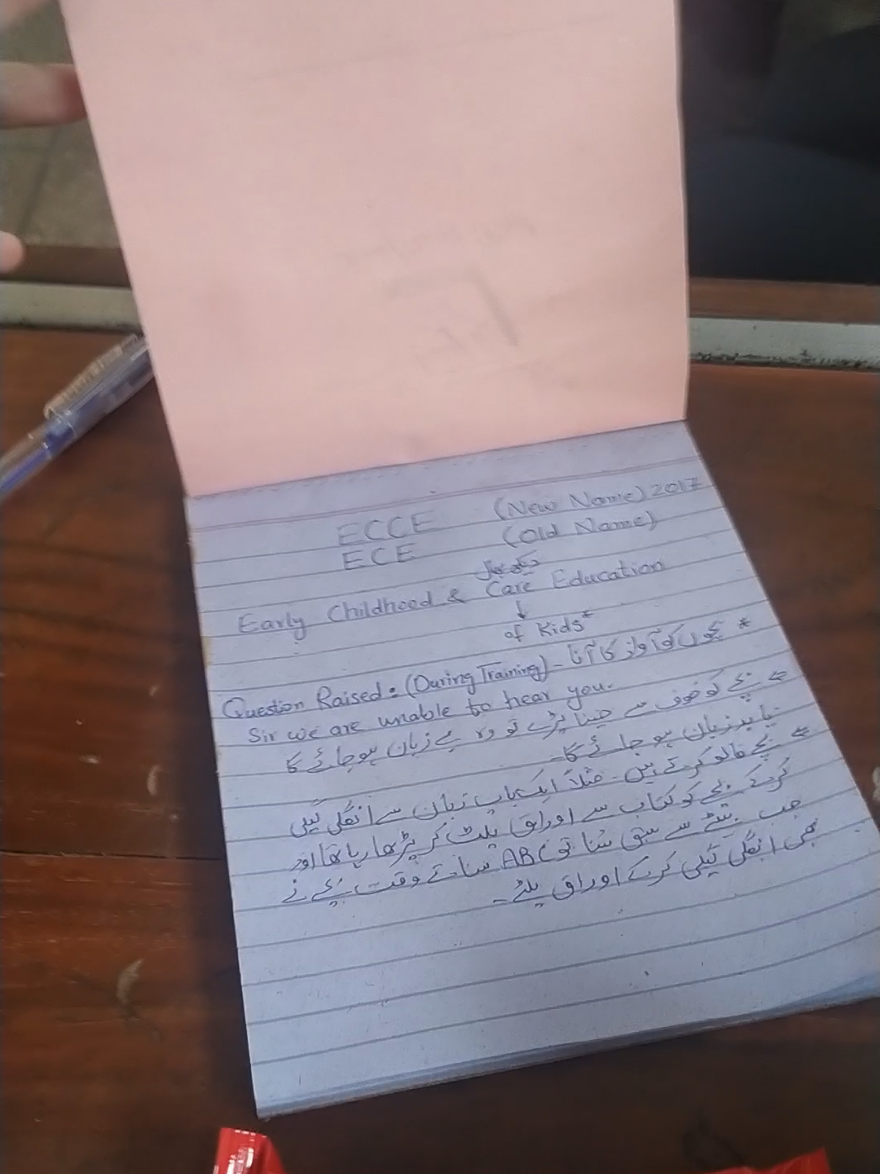 ECCE (New Name) 2017
ECE (Old Name)
دیکھ بھال
Early Childhood & Care Education
↓
of Kids*
* بچوں کو آواز کا آنا
Question Raised: (During Training) -
Sir we are unable to hear you.
بچے کو خوف سے جینا پڑے تو وہ بے زبان ہو جائے گا
یا بد زبان ہو جائے گا۔
بچے فالو کرتے ہیں۔ مثلاً ایک باپ زبان سے انگلی گیلی
کرکے بچے کو کتاب سے اوراق پلٹ کر پڑھا رہا تھا اور
جب بیٹے سے سبق سُنا تو ABC سُناتے وقت بچے نے
بھی انگلی گیلی کرکے اوراق پلٹے۔